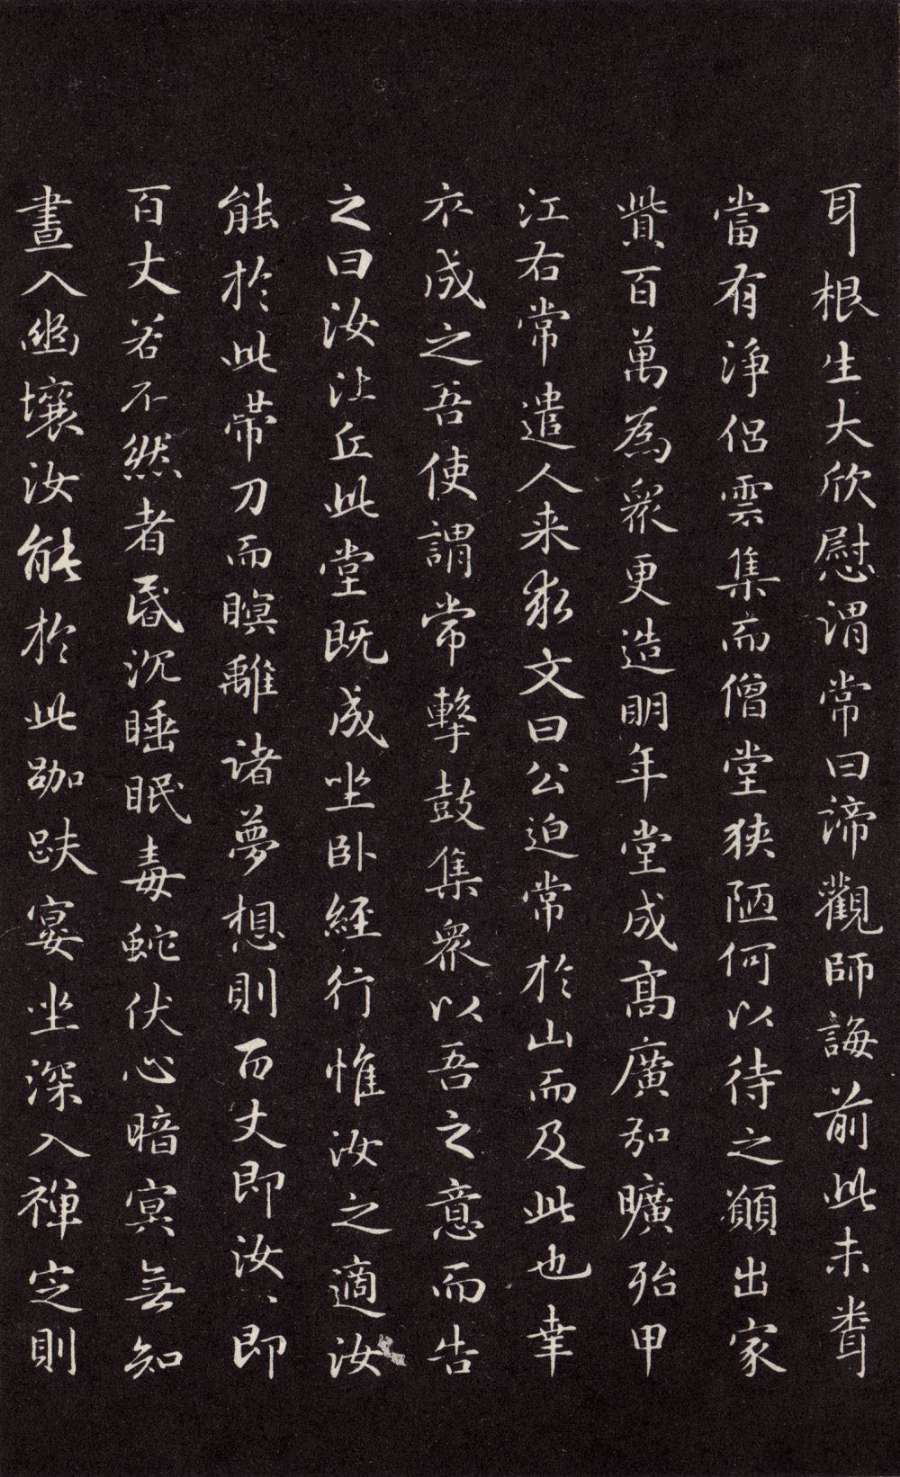 耳根生大欣慰謂常曰諦觀師誨前此未聋
當有淨侶雲集而僧堂狹陋何以待之願出家
貲百萬為眾更造明年堂成高廣加曠殆甲
江右常遣人来求文曰公迫常於山而及此也幸
卒成之吾使謂常擊鼓集眾以吾之意而告
之曰汝比丘此堂既成坐卧經行惟汝之適汝
能於此帶刀而瞑離諸夢想則百丈即汝汝即
百丈若不然者昏沉睡眠毒蛇伏心暗冥無知
晝入幽壤汝能於此跏趺宴坐深入禪定則